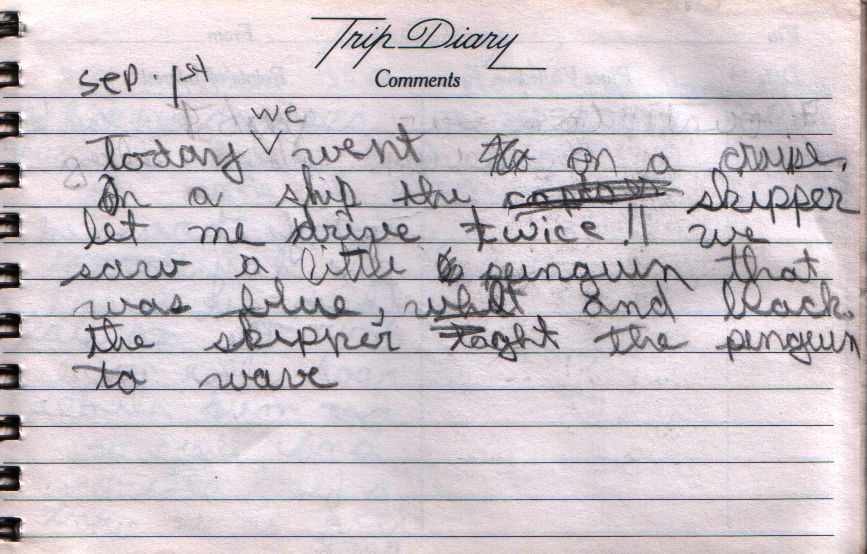 Trip Diary
Comments
sep. 1st
we
today went on a cruise.
On a ship the skipper
let me drive twice!! we
saw a little penguin that
was blue, whit and black.
the skipper taght the penguin
to wave